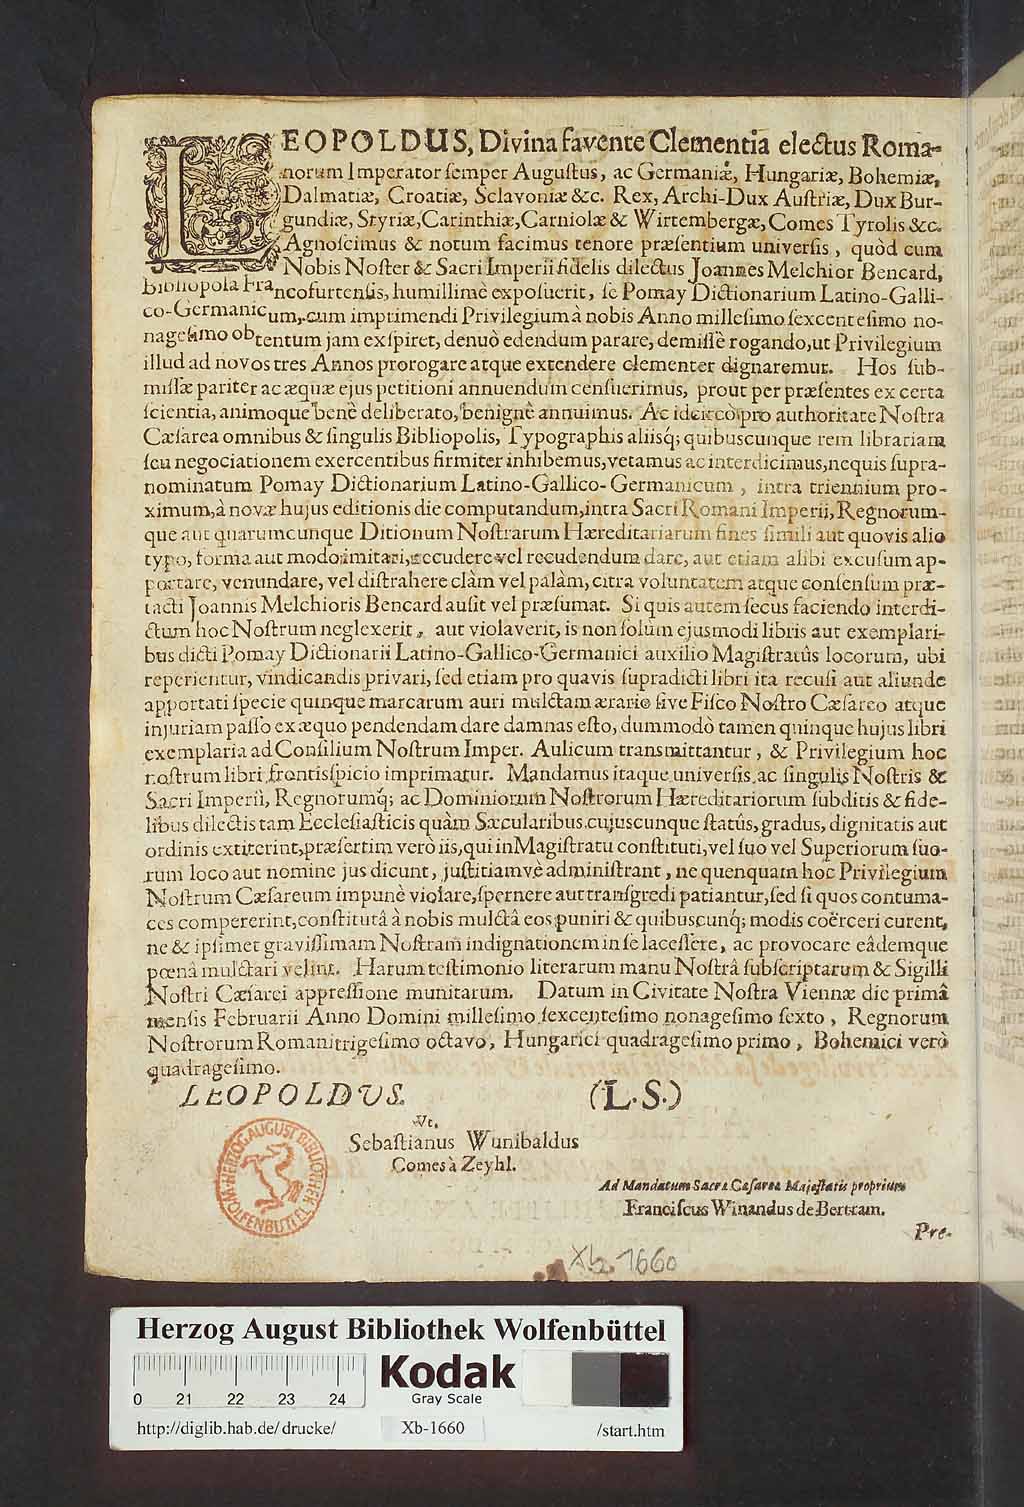 LEOPOLDUS, Divina favente Clementia electus Roma-
norum Imperator ſemper Auguſtus, ac Germaniæ, Hungariæ, Bohemiæ,
Dalmatiæ, Croatiæ, Sclavoniæ &c. Rex, Archi-Dux Auſtriæ, Dux Bur-
gundiæ, Styriæ, Carinthiæ, Carniolæ & Wirtembergæ, Comes Tyrolis &c.
Agnoſcimus & notum facimus tenore præſentium univerſis, quòd cum
Nobis Noſter & Sacri Imperii fidelis dilectus Joannes Melchior Bencard,
Bibliopola Francofurtenſis, humillimè expoſuerit, ſe Pomay Dictionarium Latino-Galli-
co-Germanicum, cum imprimendi Privilegium à nobis Anno milleſimo ſexcenteſimo no-
nageſimo obtentum jam exſpiret, denuò edendum parare, demiſſè rogando, ut Privilegium
illud ad novos tres Annos prorogare atque extendere clementer dignaremur. Hos ſub-
miſſæ pariter ac æquæ ejus petitioni annuendum cenſuerimus, prout per præſentes ex certa
ſcientia, animoque benè deliberato, benignè annuimus. Ac idcircò pro authoritate Noſtra
Cæſarea omnibus & ſingulis Bibliopolis, Typographis aliisq; quibuscunque rem librariam
ſeu negociationem exercentibus firmiter inhibemus, vetamus ac interdicimus, nequis ſupra-
nominatum Pomay Dictionarium Latino-Gallico-Germanicum, intra triennium pro-
ximum, à novæ hujus editionis die computandum, intra Sacri Romani Imperii, Regnorum-
que aut quarumcunque Ditionum Noſtrarum Hæreditariarum fines ſimili aut quovis alio
typo, forma aut modo imitari, recudere vel recudendum dare, aut etiam alibi excuſum ap-
portare, venundare, vel diſtrahere clàm vel palàm, citra voluntatem atque conſenſum præ-
tacti Joannis Melchioris Bencard auſit vel præſumat. Si quis autem ſecus faciendo interdi-
ctum hoc Noſtrum neglexerit, aut violaverit, is non ſolùm ejusmodi libris aut exemplari-
bus dicti Pomay Dictionarii Latino-Gallico-Germanici auxilio Magiſtratûs locorum, ubi
reperientur, vindicandis privari, ſed etiam pro quavis ſupradicti libri ita recuſi aut aliunde
apportati ſpecie quinque marcarum auri mulctam ærario ſive Fiſco Noſtro Cæſareo atque
injuriam paſſo ex æquo pendendam dare damnas eſto, dummodò tamen quinque hujus libri
exemplaria ad Conſilium Noſtrum Imper. Aulicum transmittantur, & Privilegium hoc
noſtrum libri frontiſpicio imprimatur. Mandamus itaque univerſis ac ſingulis Noſtris &
Sacri Imperii, Regnorumq; ac Dominiorum Noſtrorum Hæreditariorum ſubditis & fide-
libus dilectis tam Eccleſiaſticis quàm Sæcularibus cujuscunque ſtatûs, gradus, dignitatis aut
ordinis extiterint, præſertim verò iis, qui in Magiſtratu conſtituti, vel ſuo vel Superiorum ſuo-
rum loco aut nomine jus dicunt, juſtitiamvè adminiſtrant, ne quenquam hoc Privilegium
Noſtrum Cæſareum impunè violare, ſpernere aut transgredi patiantur, ſed ſi quos contuma-
ces compererint, conſtitutâ à nobis mulctâ eos puniri & quibuscunq; modis coërceri curent,
ne & ipſimet graviſſimam Noſtram indignationem in ſe laceſſere, ac provocare eâdemque
pœnâ mulctari velint. Harum teſtimonio literarum manu Noſtrâ ſubſcriptarum & Sigilli
Noſtri Cæſarei appreſſione munitarum. Datum in Civitate Noſtra Viennæ die primâ
menſis Februarii Anno Domini milleſimo ſexcenteſimo nonageſimo ſexto, Regnorum
Noſtrorum Romani trigeſimo octavo, Hungarici quadrageſimo primo, Bohemici verò
quadrageſimo.
LEOPOLDVS. (L.S.)
Vt.
Sebaſtianus Wunibaldus
Comes à Zeyhl.
Ad Mandatum Sacræ Cæſareæ Majeſtatis proprium
Franciſcus Winandus de Bertram.
Pre-
HERZOG AUGUST BIBLIOTHEK WOLFENBÜTTEL
Xb 1660
Herzog August Bibliothek Wolfenbüttel
0 21 22 23 24
Kodak
Gray Scale
http://diglib.hab.de/drucke/ Xb-1660 /start.htm